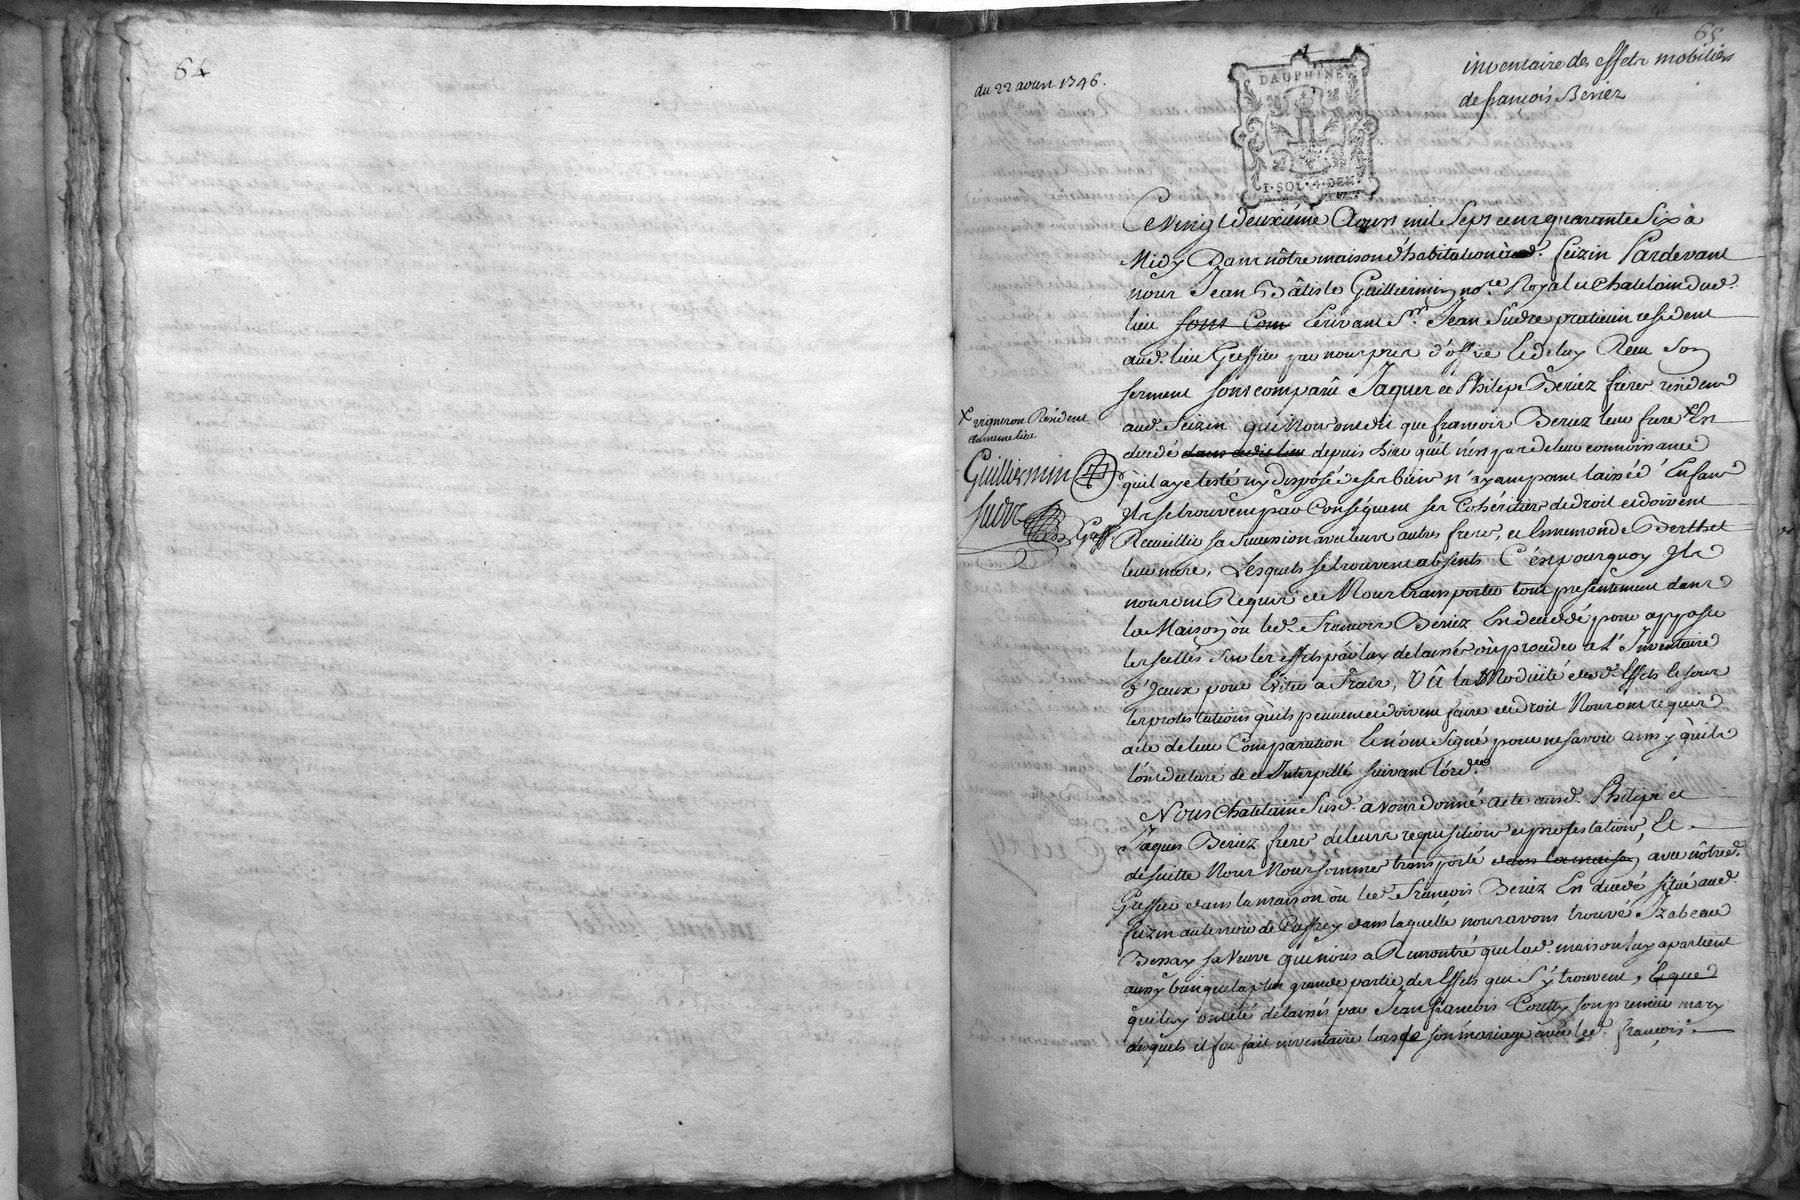 64
65
du 22 aoust 1746.
inventaire des effets mobiliers
de francois Beriez
DAUPHINE
1·SOL·4·DEN·
Ce vingt deuxiéme Aoust mil sept cent quarante Six à
Midy Dans nôtre maison d'habitation aud. feizin Pardevant
nous Jean Bâtiste Guilliermin no.re Royal et Chatelain dud.
lieu sont com Ecrivant S.r Jean Sudre praticien resident
aud. lieu Greffier par nous pris d'office Et de luy Receu Son
serment sont comparû Jaques et Philipe Beriez freres residens
aud. feizin qui Nous ont dit que francois Beriez leur frere x Est
decedé dans cedit lieu depuis hier qu'il n'est pas de leur connoissance
qu'il aye testé ny disposé de ses biens n'ayant point laissé d'Enfans
Ils se trouvent par Conséquent ses Cohéritiers de droit et doivent
Recueillir sa Succession avec leurs autres freres, et Ennemonde Berthet
leur mere, Lesquels se trouvent absents C'est pourquoy Ils
nous ont Requis de Nous transporter tout presentement dans
la Maison où led. Francois Beriez Est decedé pour apposer
les scellés Sur les effets par luy delaissés où proceder à l'Inventaire
d'Iceux pour Eviter a frais, Vû la Modicité desd. Effets Et sous
les protestations qu'ils peuvent et doivent faire de droit Nous ont requis
acte de leur Comparution Et n'ont Signé pour ne savoir ainsy qu'ils
l'ont declaré de ce Interpellés suivant l'ord.ce
x vigneron Résident
au meme lieu
Guilliermin
Sudre
Greff.
Nous Chatelain Susd. avons donné acte ausd. Philipe et
Jaques Beriez freres de leurs requisition et protestations, Et
de suitte Nous Nous sommes transporté dans la maison avec nôtred.
Greffier dans la maison où led. Francois Beriez Est decedé situé aud.
feizin au terroir de dans laquelle nous avons trouvé Izabeau
Bessay sa Veuve qui nous a Remontré que lad. maison luy apartient
aussy bien que la plus grande partie des Effets qui S'y trouvent, Et que
qui luy ont été delaissés par Jean francois Coutty son premier mary
desquels il fut fait inventaire lors de son mariage avec led. francois